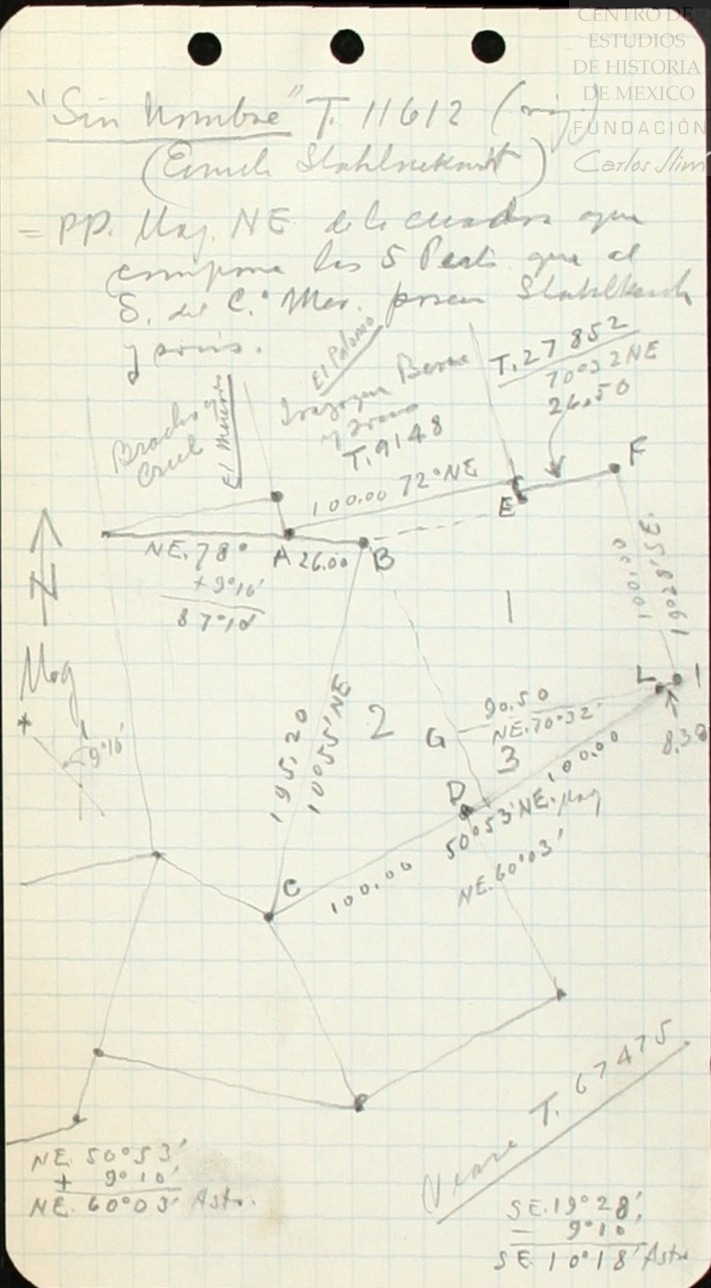 CENTRO DE
ESTUDIOS
DE HISTORIA
DE MEXICO
FUNDACIÓN
Carlos Slim
"Sin Nombre" T. 11612
= PP. Mag. NE de la cuadra que
compone las 5 Perts. que al
S. del C.º Mer. poseen
y socios.
El Palomo
T. 27852
70°32 NE
26.50
Bracho y
Cruz
T. 9148
100.00 72° NE
F
E
NE. 78°
+ 9°10'
87°10
A 26.00 B
N
1
100.00
19°28' SE.
Mag
9°10'
195.20
10°55' NE
2
G
90.50
NE. 70°32'
L
I
8.38
3
100.00
D
50°53' NE. Mag
NE. 60°03'
C
100.00
Vease T. 67475
NE. 50°53'
+ 9°10'
NE. 60°03' Astr.
SE. 19°28'
- 9°10'
SE 10°18' Astr